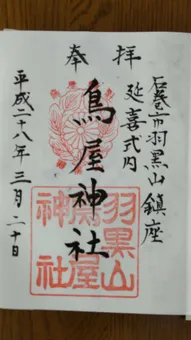 奉拝
石巻市羽黒山鎮座
延喜式内
鳥屋神社
平成二十八年三月二十日
羽黒山
鳥屋
神社